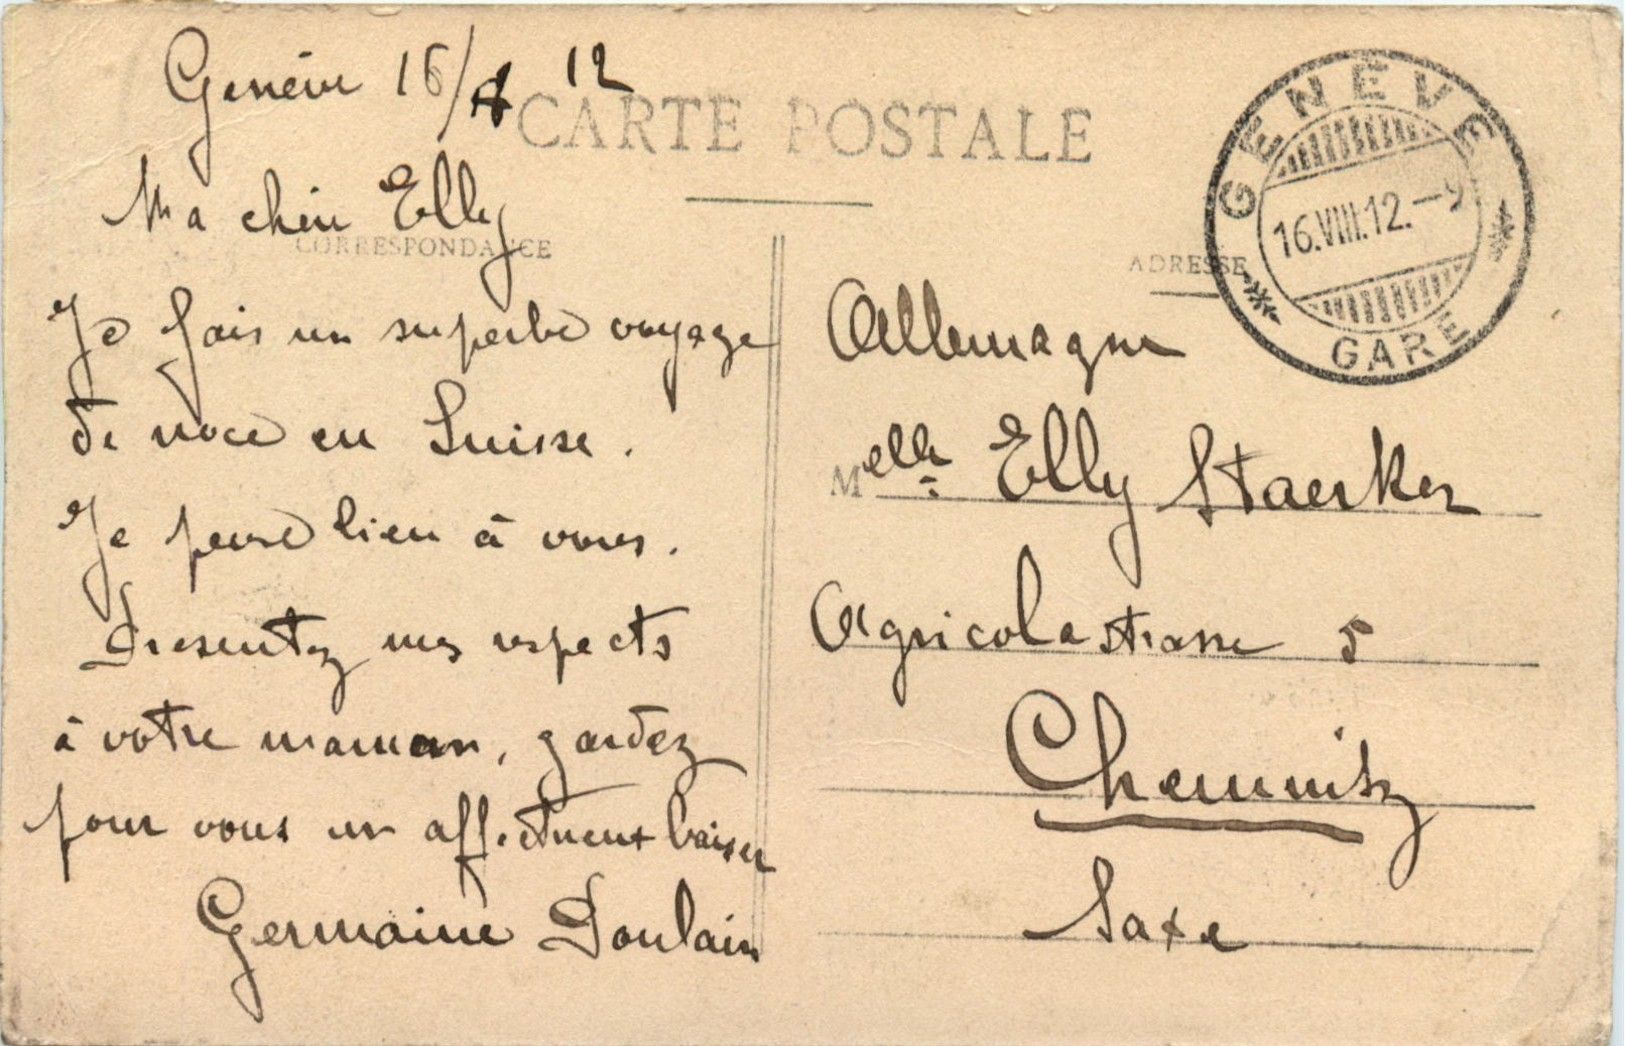 Genève 16/8 12
CARTE POSTALE
Ma chère Elly
CORRESPONDANCE
Je fais un superbe voyage
de noce en Suisse.
Je pense bien à vous.
Présentez mes respects
à votre maman, gardez
pour vous un affectueux baiser
Germaine Poulain
GENÈVE
16.VIII.12.–9
GARE
ADRESSE
Allemagne
Melle Elly Staerker
Agricolastrasse 5
Chemnitz
Saxe